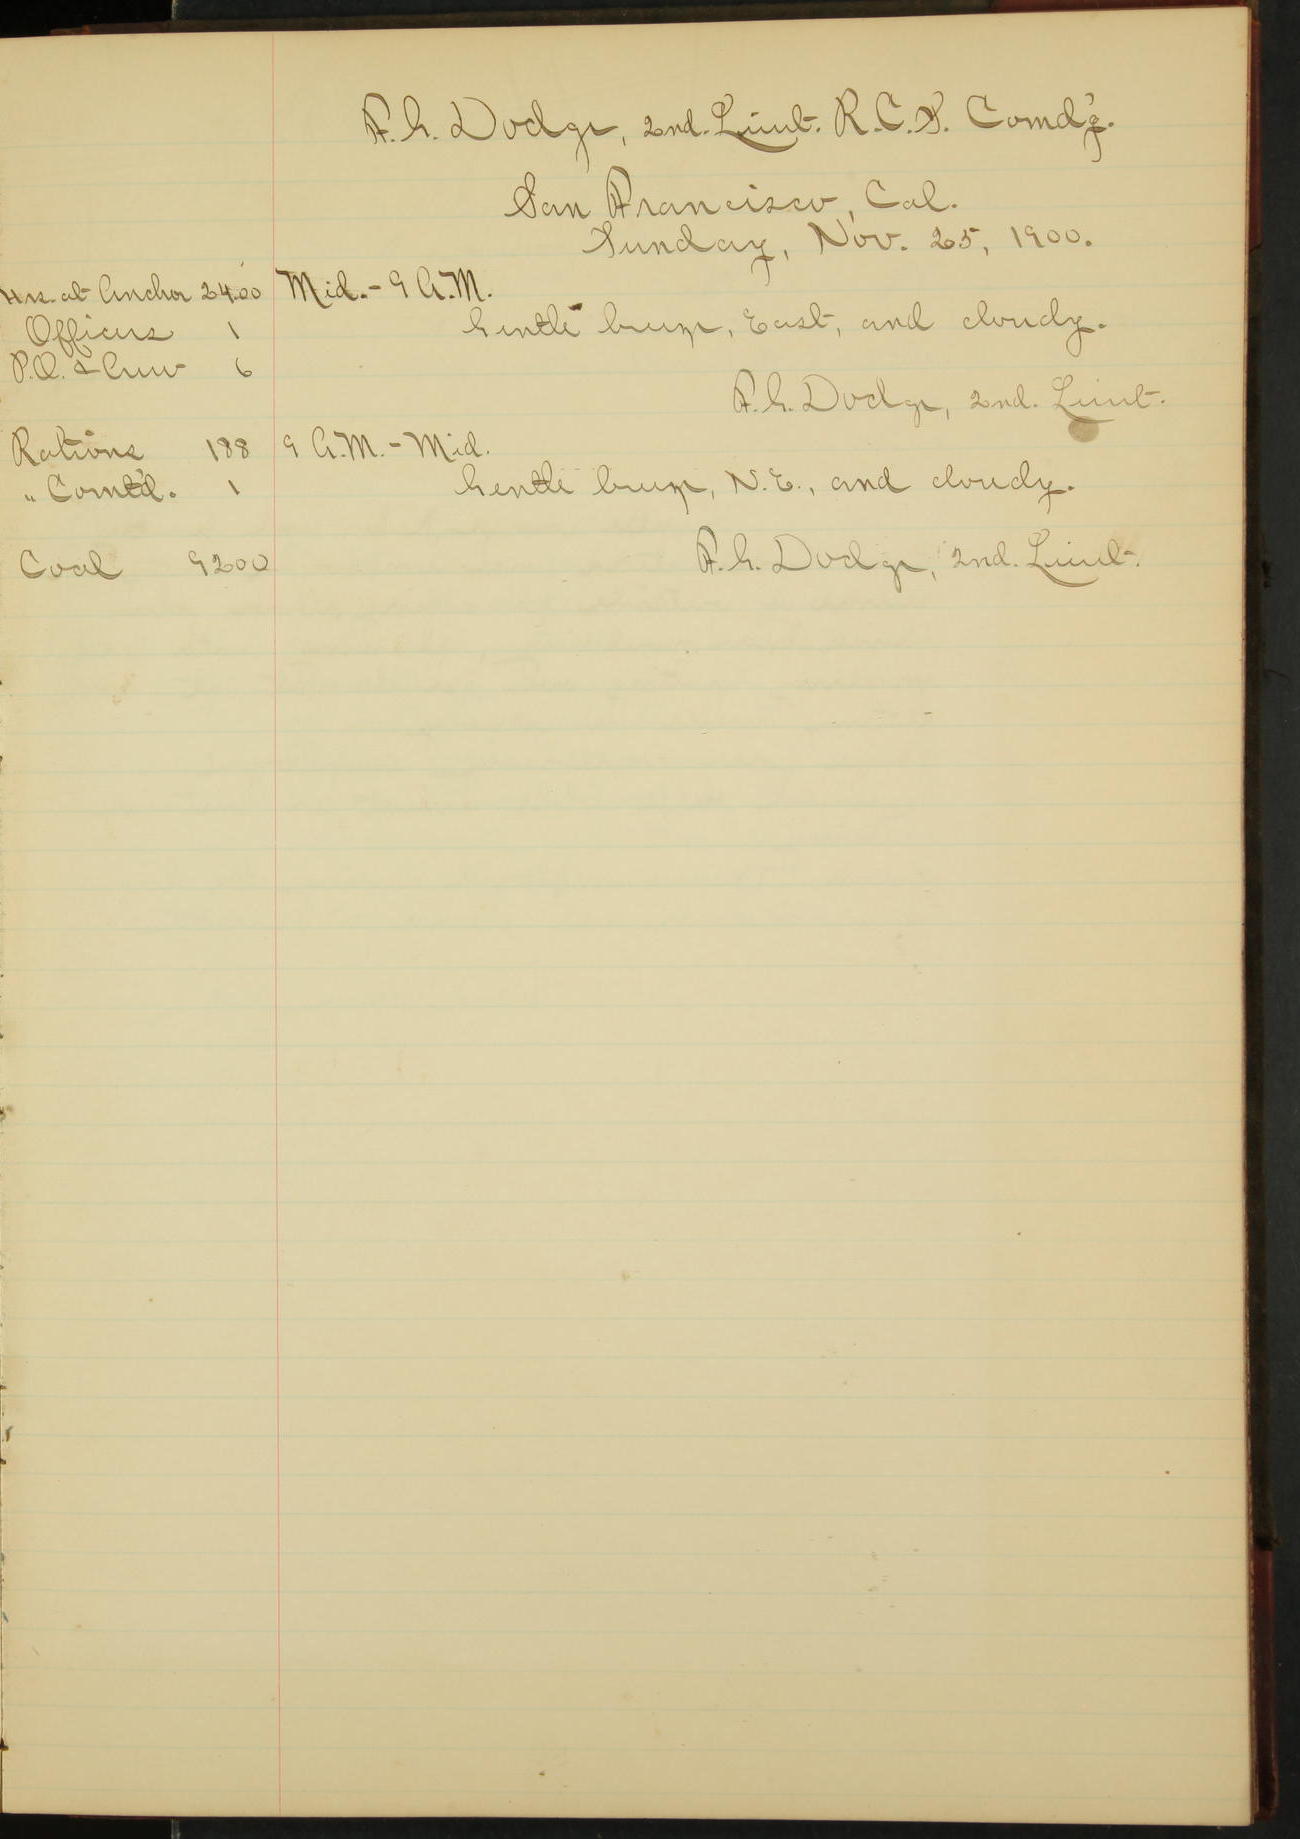 F. G. Dodge, 2nd. Lieut. R.C.S. Comd'g.
San Francisco, Cal.
Sunday, Nov. 25, 1900.
Hrs. at Anchor 24.00 Mid. - 9 A.M.
Officers 1 Gentle breeze, East, and cloudy.
P.O. & Crew 6
F. G. Dodge, 2nd. Lieut.
Rations 188 9 A.M. - Mid.
" Com't'd. 1 Gentle breeze, N.E., and cloudy.
Coal 9200 F. G. Dodge, 2nd. Lieut.